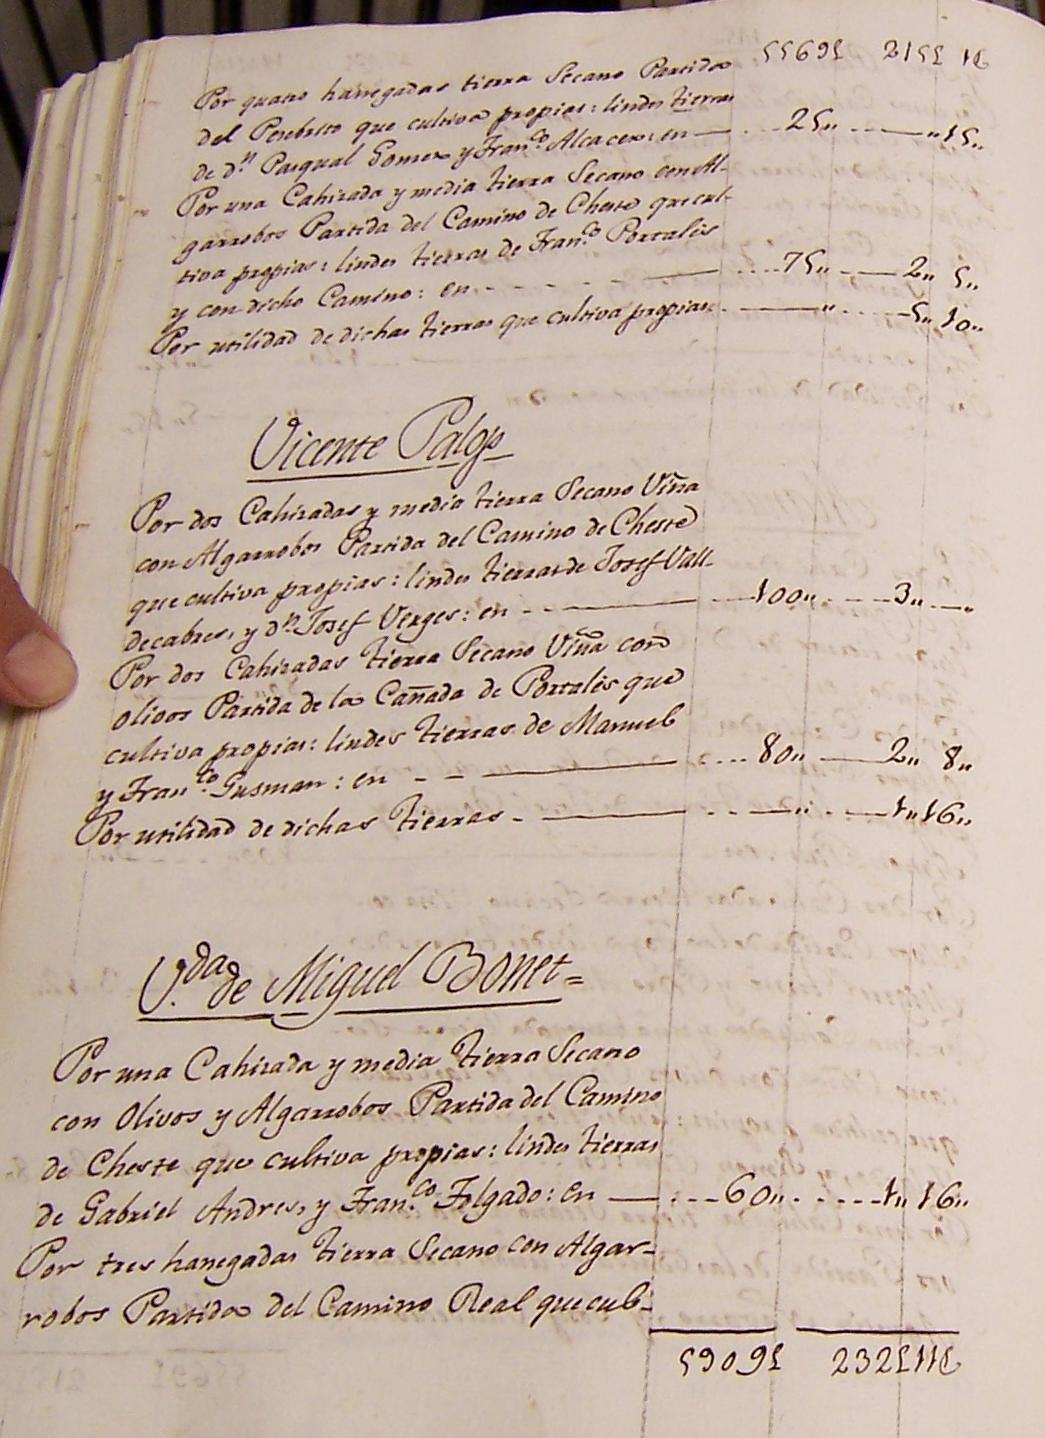 5569£ 215£ 1 D
Por quatro hanegadas tierra Secano Partida
del Perebrero que cultiva propias: lindes tierras
de Dn. Pasqual Gomez y Franco. Alcacer: en — 25,, — ,,15,,
Por una Cahizada y media tierra Secano con Al-
garrobos Partida del Camino de Cheste que cul-
tiva propias: lindes tierras de Franco. Portalès
y con dicho Camino: en - - - — 75,, — 2,, 5,,
Por utilidad de dichas tierras que cultiva propias: — ,, — 5,, 10,,
Vicente Palop
Por dos Cahizadas y media tierra Secano Viña
con Algarrobos Partida del Camino de Cheste
que cultiva propias: lindes tierras de Josef Vall-
decabres, y Dn. Josef Verges: en — 100,, — 3,, — ,,
Por dos Cahizadas tierra Secano Viña con
olivos Partida de la Cañada de Portalès que
cultiva propias: lindes tierras de Manuel
y Franco. Gusman: en - - — 80,, — 2,, 8,,
Por utilidad de dichas tierras - — ,, — 1,, 16,,
V.da de Miguel Bonet=
Por una Cahizada y media tierra Secano
con Olivos y Algarrobos Partida del Camino
de Cheste que cultiva propias: lindes tierras
de Gabriel Andres, y Franco. Folgado: en — 60,, — 1,, 16,,
Por tres hanegadas tierra Secano con Algar-
robos Partida del Camino Real que cul-
5906£ 232£ 11 D